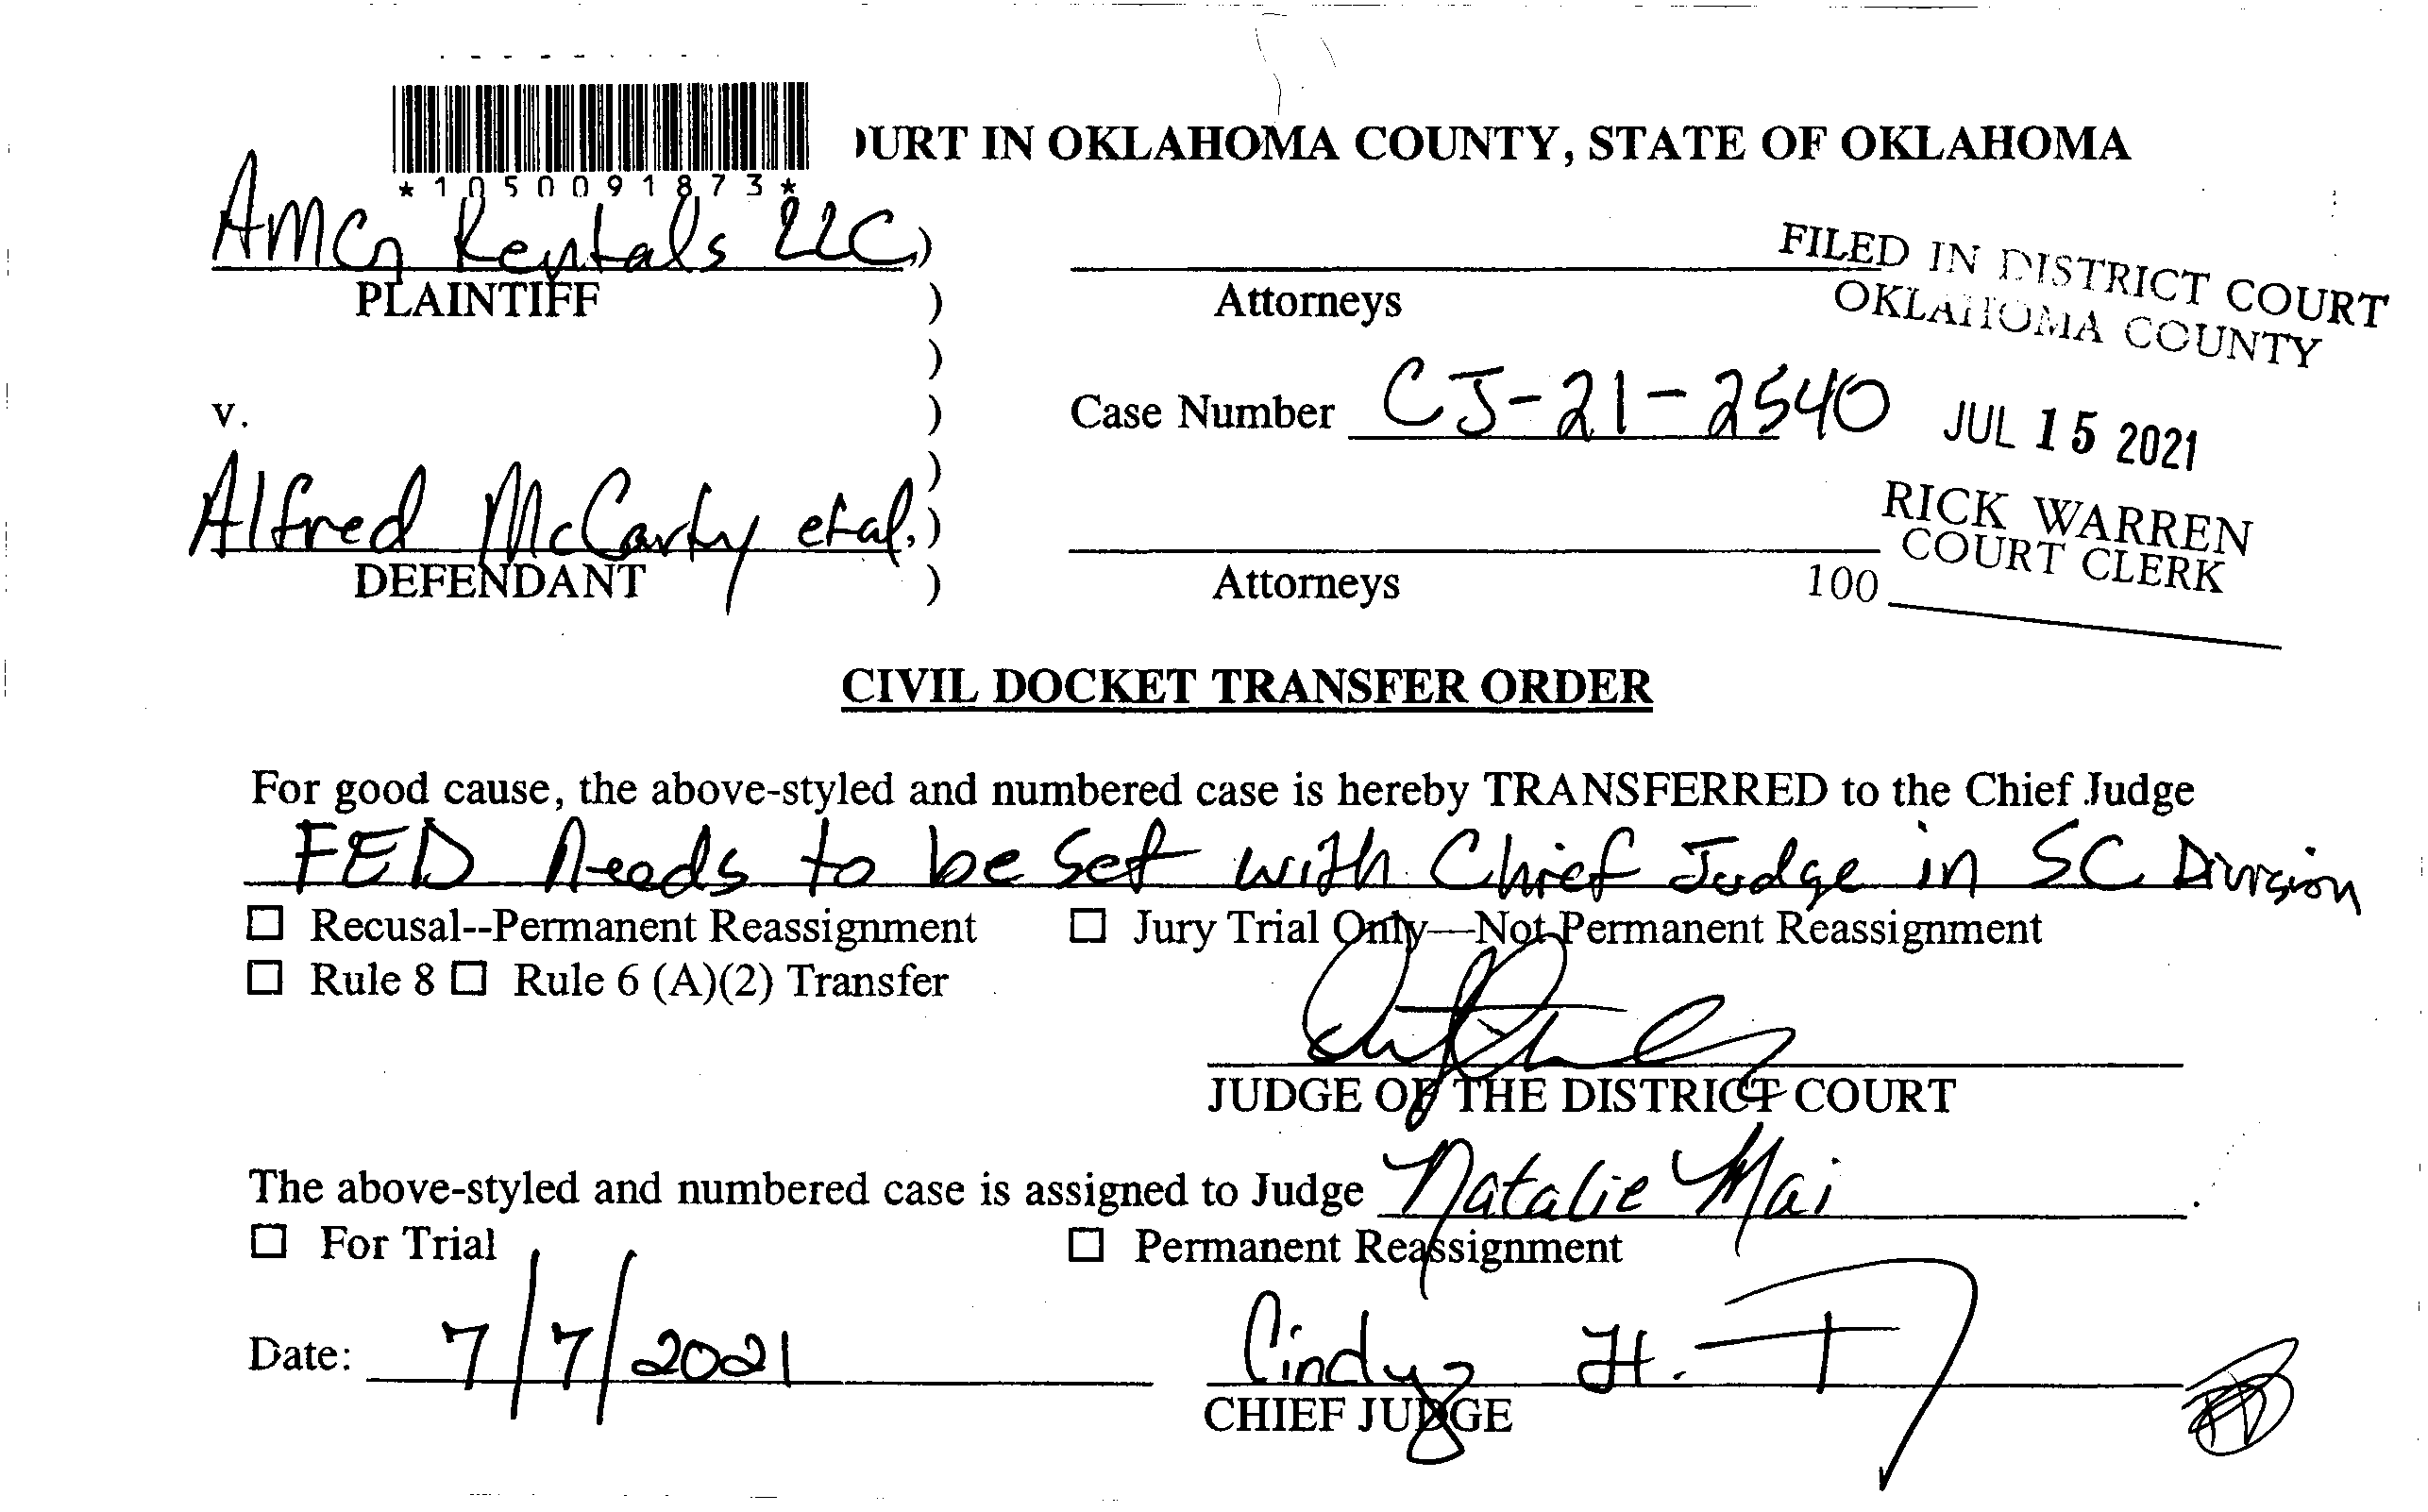 URT IN OKLAHOMA COUNTY, STATE OF OKLAHOMA
*1050091873*
AMCG Rentals LLC, )
PLAINTIFF )
)
v. )
)
Alfred McCarty etal. )
DEFENDANT )
Attorneys
Case Number CJ-21-2540
Attorneys
FILED IN DISTRICT COURT
OKLAHOMA COUNTY
JUL 15 2021
RICK WARREN
COURT CLERK
100
CIVIL DOCKET TRANSFER ORDER
For good cause, the above-styled and numbered case is hereby TRANSFERRED to the Chief Judge
FED Needs to be Set with Chief Judge in SC Division
☐ Recusal--Permanent Reassignment ☐ Jury Trial Only—Not Permanent Reassignment
☐ Rule 8 ☐ Rule 6 (A)(2) Transfer
JUDGE OF THE DISTRICT COURT
The above-styled and numbered case is assigned to Judge Natalie Mai.
☐ For Trial ☐ Permanent Reassignment
Date: 7/7/2021 Cindy H. T
CHIEF JUDGE